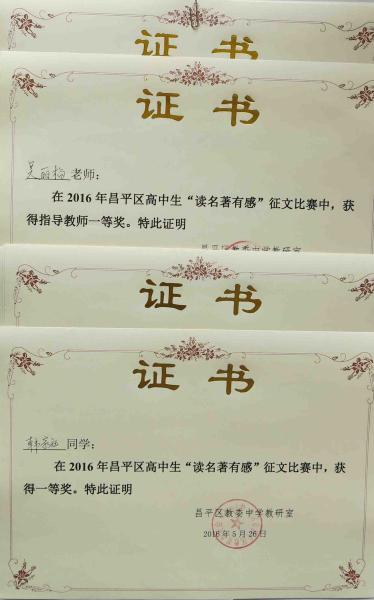 证书
证书
吴丽梅 老师：
在 2016 年昌平区高中生“读名著有感”征文比赛中，获
得指导教师一等奖。特此证明
昌平区教委中学教研室
证书
证书
同学：
在 2016 年昌平区高中生“读名著有感”征文比赛中，获
得一等奖。特此证明
昌平区教委中学教研室
2016 年 5 月 26 日